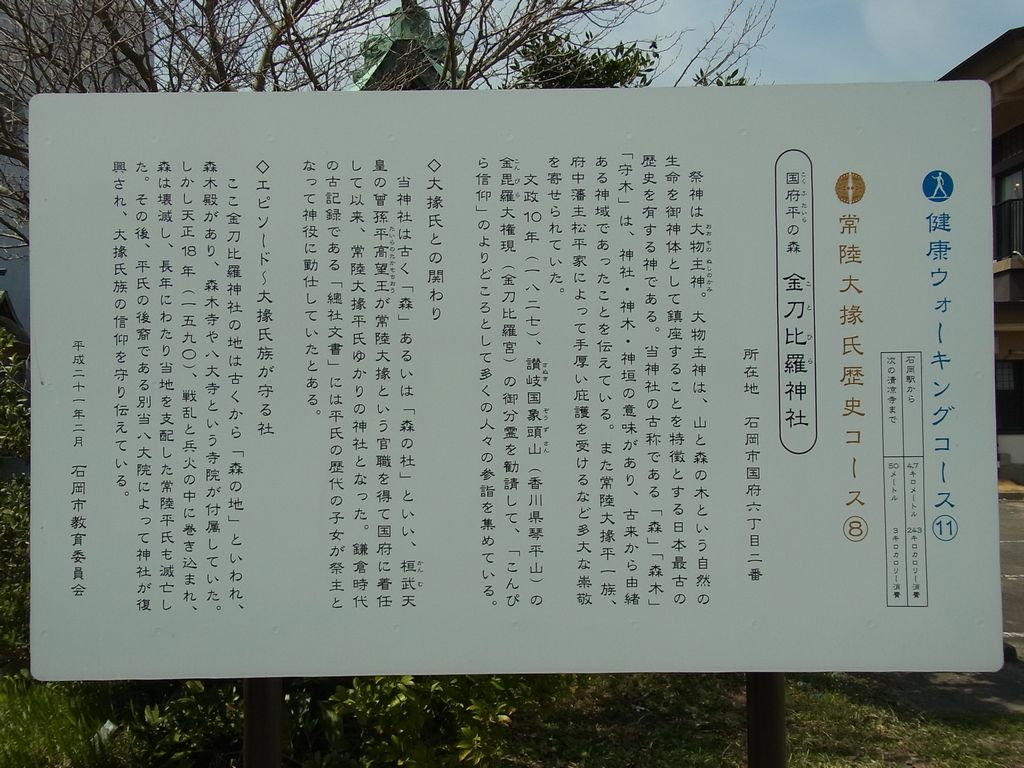 健康ウォーキングコース⑪
石岡駅から 4.7キロメートル 243キロカロリー消費
次の清凉寺まで 50メートル 3キロカロリー消費
常陸大掾氏歴史コース⑧
国府平の森 金刀比羅神社
こくふたいら ことひら
所在地 石岡市国府六丁目二番
祭神は大物主神。大物主神は、山と森の木という自然の
おおものぬしのかみ
生命を御神体として鎮座することを特徴とする日本最古の
歴史を有する神である。当神社の古称である「森」「森木」
「守木」は、神社・神木・神垣の意味があり、古来から由緒
ある神域であったことを伝えている。また常陸大掾平一族、
府中藩主松平家によって手厚い庇護を受けるなど多大な崇敬
を寄せられていた。
文政10年（一八二七）、讃岐国象頭山（香川県琴平山）の
さぬき ぞうずさん
金毘羅大権現（金刀比羅宮）の御分霊を勧請して、「こんぴ
こんぴら
ら信仰」のよりどころとして多くの人々の参詣を集めている。
◇大掾氏との関わり
当神社は古く「森」あるいは「森の社」といい、桓武天
かんむ
皇の曽孫平高望王が常陸大掾という官職を得て国府に着任
たいらのたかもちおう
して以来、常陸大掾平氏ゆかりの神社となった。鎌倉時代
の古記録である「總社文書」には平氏の歴代の子女が祭主と
なって神役に勤仕していたとある。
◇エピソード～大掾氏族が守る社
ここ金刀比羅神社の地は古くから「森の地」といわれ、
森木殿があり、森木寺や八大寺という寺院が付属していた。
しかし天正18年（一五九〇）、戦乱と兵火の中に巻き込まれ、
森は壊滅し、長年にわたり当地を支配した常陸平氏も滅亡し
た。その後、平氏の後裔である別当八大院によって神社が復
興され、大掾氏族の信仰を守り伝えている。
平成二十一年二月 石岡市教育委員会